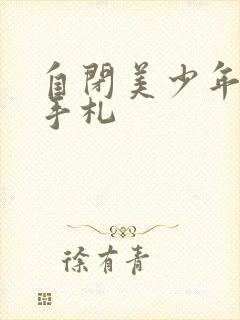 自閉美少年
手札
徐有青